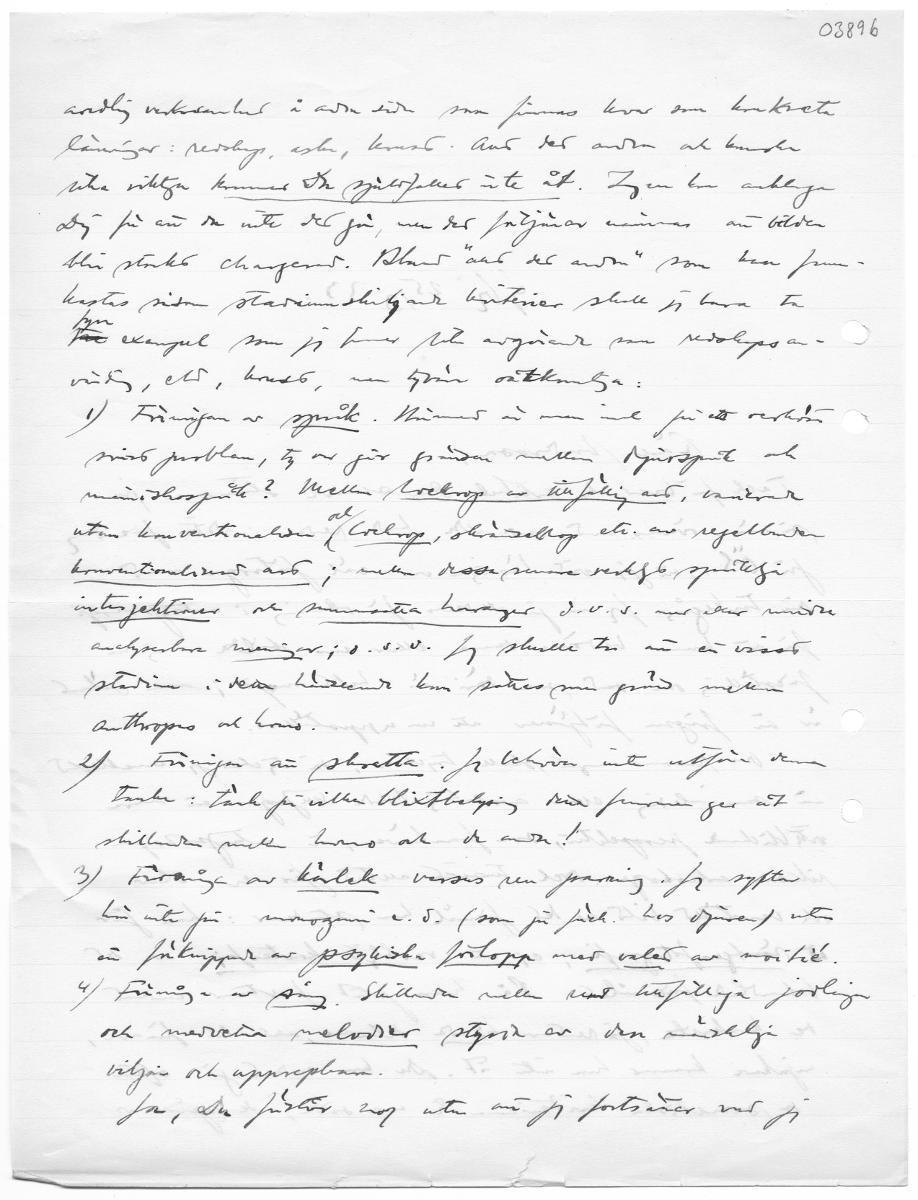 03896
andlig verksamhet å andra sidan som finnas kvar som konkreta
lämningar: redskap, aska, konst. Allt det andra och kanske
lika viktiga kommer Du självfallet inte åt. Ingen kan anklaga
Dig för att du inte det gör, men det förtjänar nämnas att bilden
blir starkt chargerad. Bland "allt det andra" som kan fram-
kastas såsom stadieurskiljande kriterier skulle jag bara ta
fyra exempel som jag finner lika avgörande som redskapsan-
vändning, eld, konst, men tyvärr oåtkomliga:
1) Förmågan av språk. Härmed är man inne på ett oerhört
svårt problem, ty var går gränsen mellan djurspråk och
människospråk? Mellan lockrop av tillfällig art, varierande
utan konventionalism och lockrop, skrämselrop etc. av regelbunden
konventionaliserad art; mellan dessa senare verkligt språkliga
interjektioner och sammansatta haranger d.v.s. mer eller mindre
analyserbara meningar; o.s.v. Jag skulle tro att en visst
stadium i detta hänseende kan sättas som gräns mellan
anthropus och homo.
2) Förmågan att skratta. Jag behöver inte utföra denna
tanke: tänk på vilken blixtbelysning denna förmåga ger åt
skillnaden mellan homo och de andra!
3) Förmåga av kärlek versus ren parning. Jag syftar
här inte på monogami e. d. (som ju förek. hos djuren) utan
en förknippad av psykiska förlopp med valet av moitié.
4) Förmåga av sång. Skillnaden mellan tillfälliga jodlingar
och medvetna melodier styrda av den mänskliga
viljan och upprepbara.
Ja, Du förstår nog utan att jag fortsätter vad jag